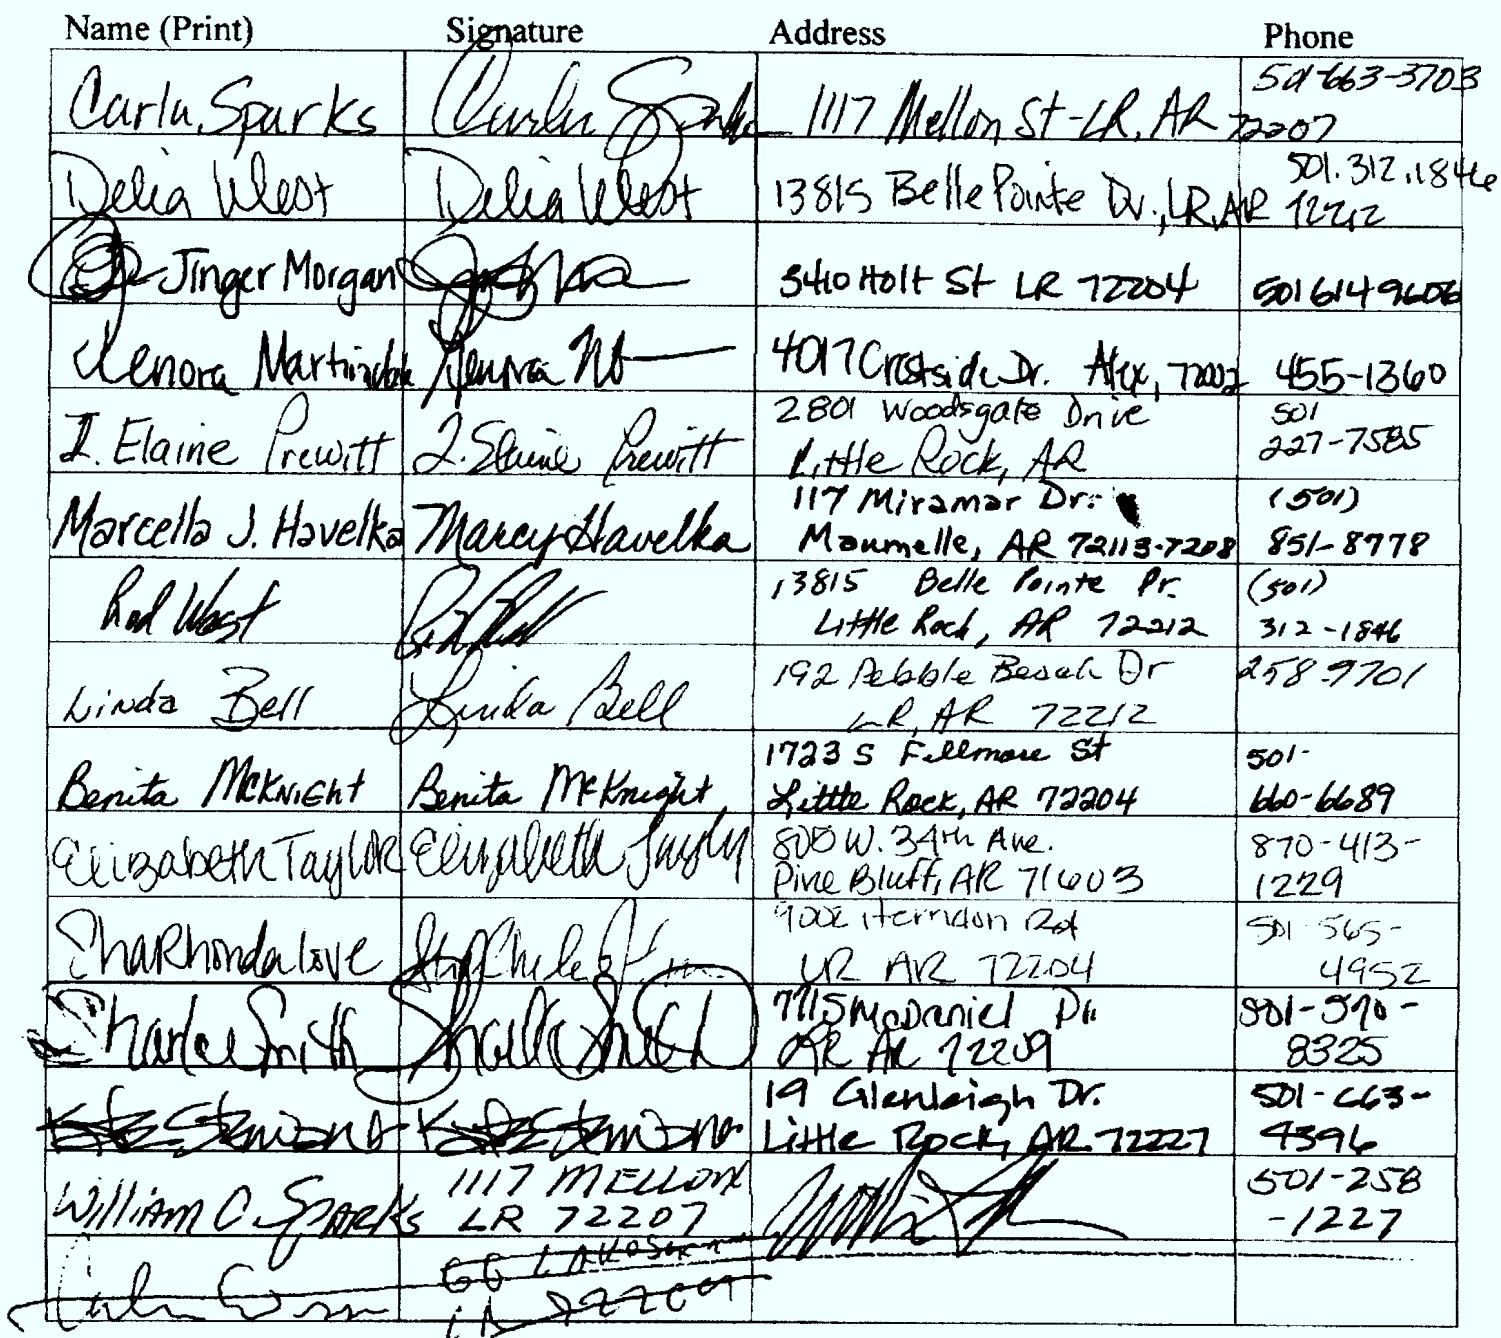 Name (Print) Signature Address Phone
Carla Sparks Carla Sparks 1117 Mellon St-LR, AR 72207 501-663-3703
Delia West Delia West 13815 Belle Pointe Dr., LR, AR 72212 501.312.1846
Jinger Morgan 3410 Holt St LR 72204 5016149606
Lenora Martindale Lenora 4017 Crestside Dr. Alex, 72002 455-1360
I. Elaine Prewitt I. Elaine Prewitt 2801 Woodsgate Drive 501
Little Rock, AR 227-7585
Marcella J. Havelka Marcy Havelka 117 Miramar Dr. (501)
Maumelle, AR 72113-7208 851-8778
Rod West 13815 Belle Pointe Dr. (501)
Little Rock, AR 72212 312-1846
Linda Bell Linda Bell 192 Pebble Beach Dr 258-9701
LR, AR 72212
Benita McKnight Benita McKnight 1723 S Fillmore St 501-
Little Rock, AR 72204 660-6689
Elizabeth Taylor Elizabeth Taylor 800 W. 34th Ave. 870-413-
Pine Bluff, AR 71603 1229
ShaRhonda Love Herndon Rd 501-565-
LR AR 72204 4952
Smith 7715 McDaniel Dr. 501-570-
AR 72209 8325
19 Glenleigh Dr. 501-663-
Little Rock, AR 72227 4396
William C. Sparks 1117 Mellon 501-258
LR 72207 -1227